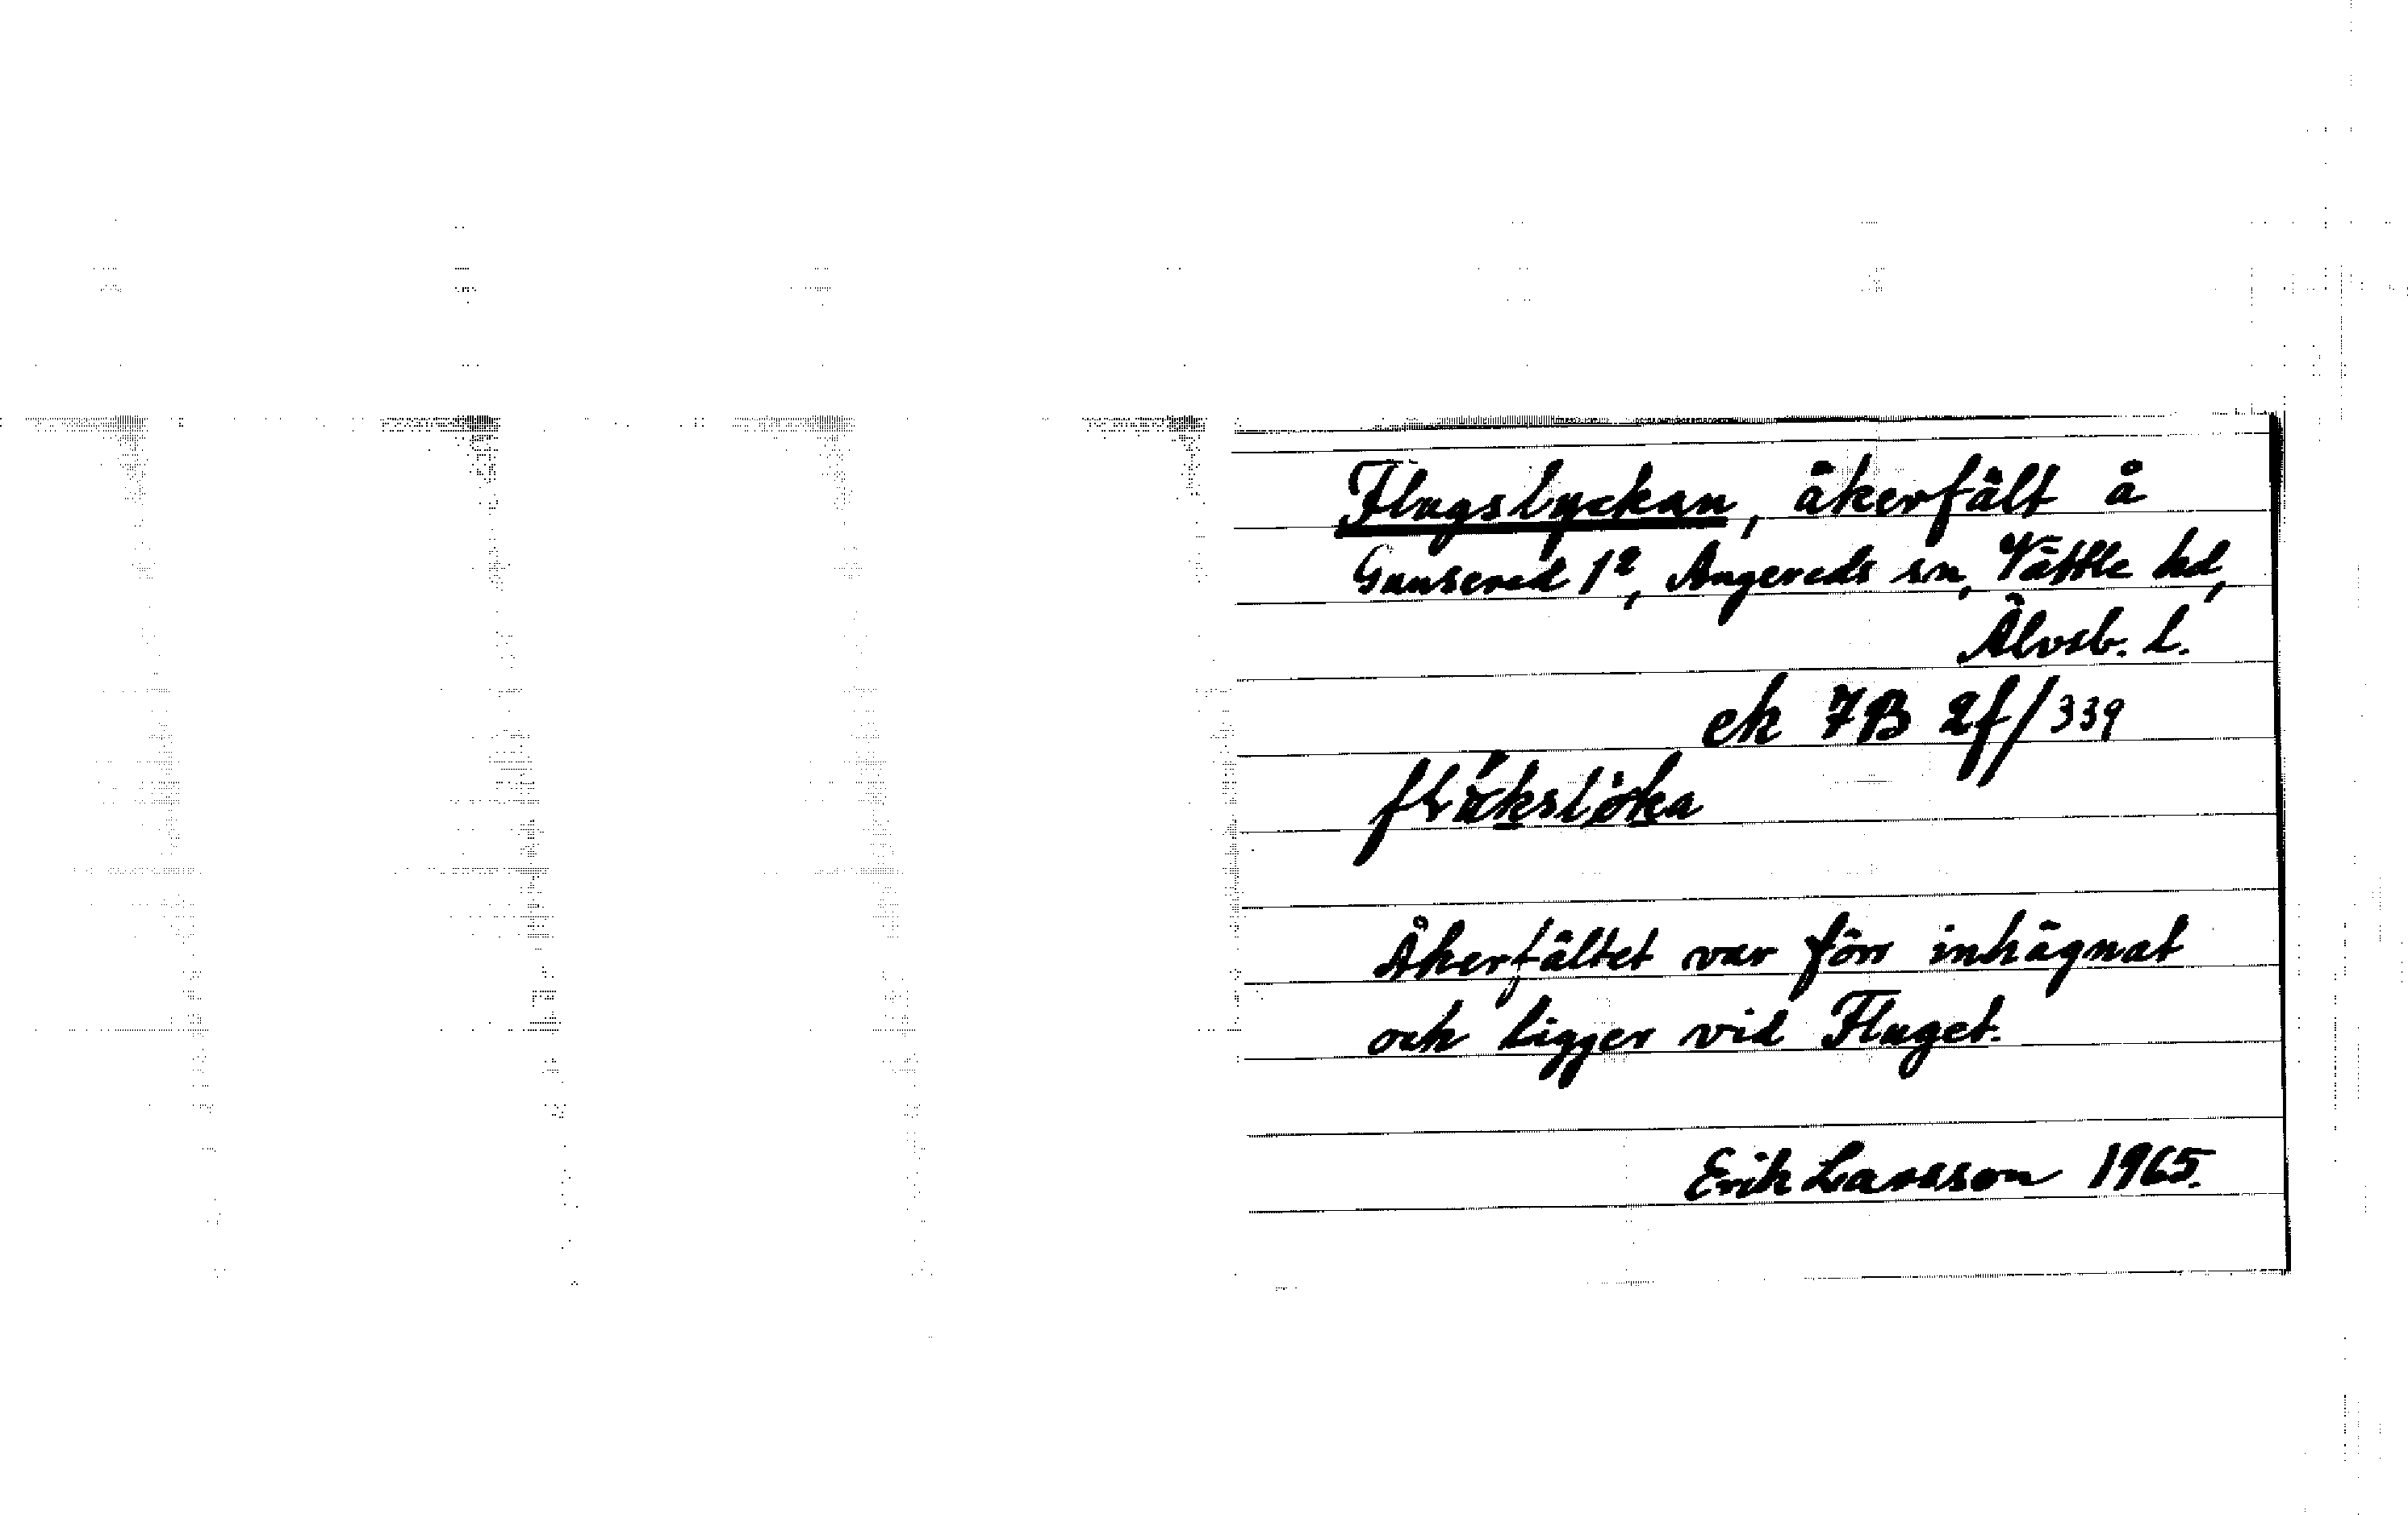 Flugslyckan, åkerfält å
Gunsered 1², Angereds sn, Vättle hd,
Älvsb. l.
ek 7B 2f/339
Åkerfältet var förr inhägnat
och ligger vid Fluget.
Erik Larsson 1965.